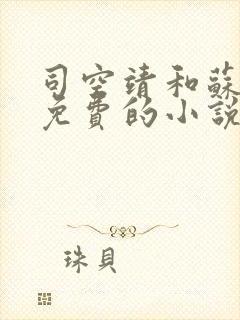 司空靖和蘇
免費的小說
珠貝